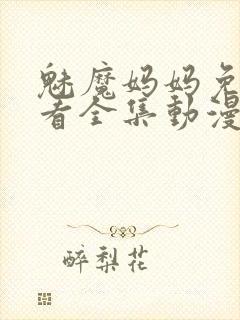 魅魔妈妈免
看全集動漫
醉梨花